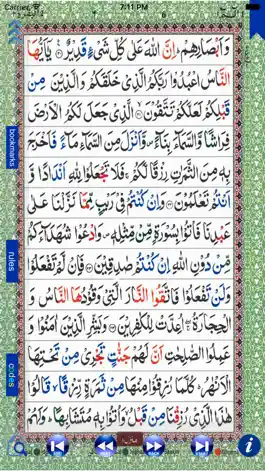 Carrier 7:11 PM
وَاَبْصَارِهِمْ ؕ اِنَّ اللّٰهَ عَلٰى كُلِّ شَىْءٍ قَدِيْرٌ ۟ يٰۤاَيُّهَا
النَّاسُ اعْبُدُوْا رَبَّكُمُ الَّذِىْ خَلَقَكُمْ وَالَّذِيْنَ مِنْ
قَبْلِكُمْ لَعَلَّكُمْ تَتَّقُوْنَ ۟ الَّذِىْ جَعَلَ لَكُمُ الْاَرْضَ
فِرَاشًا وَّالسَّمَآءَ بِنَآءً ۪ وَّاَنْزَلَ مِنَ السَّمَآءِ مَآءً فَاَخْرَجَ
بِهٖ مِنَ الثَّمَرٰتِ رِزْقًا لَّكُمْ ۚ فَلَا تَجْعَلُوْا لِلّٰهِ اَنْدَادًا وَّ
اَنْتُمْ تَعْلَمُوْنَ ۟ وَاِنْ كُنْتُمْ فِىْ رَيْبٍ مِّمَّا نَزَّلْنَا عَلٰى
عَبْدِنَا فَاْتُوْا بِسُوْرَةٍ مِّنْ مِّثْلِهٖ ۪ وَادْعُوْا شُهَدَآءَكُمْ
مِّنْ دُوْنِ اللّٰهِ اِنْ كُنْتُمْ صٰدِقِيْنَ ۟ فَاِنْ لَّمْ تَفْعَلُوْا
وَلَنْ تَفْعَلُوْا فَاتَّقُوا النَّارَ الَّتِىْ وَقُوْدُهَا النَّاسُ وَ
الْحِجَارَةُ ۖۚ اُعِدَّتْ لِلْكٰفِرِيْنَ ۟ وَبَشِّرِ الَّذِيْنَ اٰمَنُوْا وَ
عَمِلُوا الصّٰلِحٰتِ اَنَّ لَهُمْ جَنّٰتٍ تَجْرِىْ مِنْ تَحْتِهَا
الْاَنْهٰرُ ؕ كُلَّمَا رُزِقُوْا مِنْهَا مِنْ ثَمَرَةٍ رِّزْقًا ۙ قَالُوْا
هٰذَا الَّذِىْ رُزِقْنَا مِنْ قَبْلُ ۙ وَاُتُوْا بِهٖ مُتَشَابِهًا ؕ وَلَهُمْ
bookmarks
rules
codes